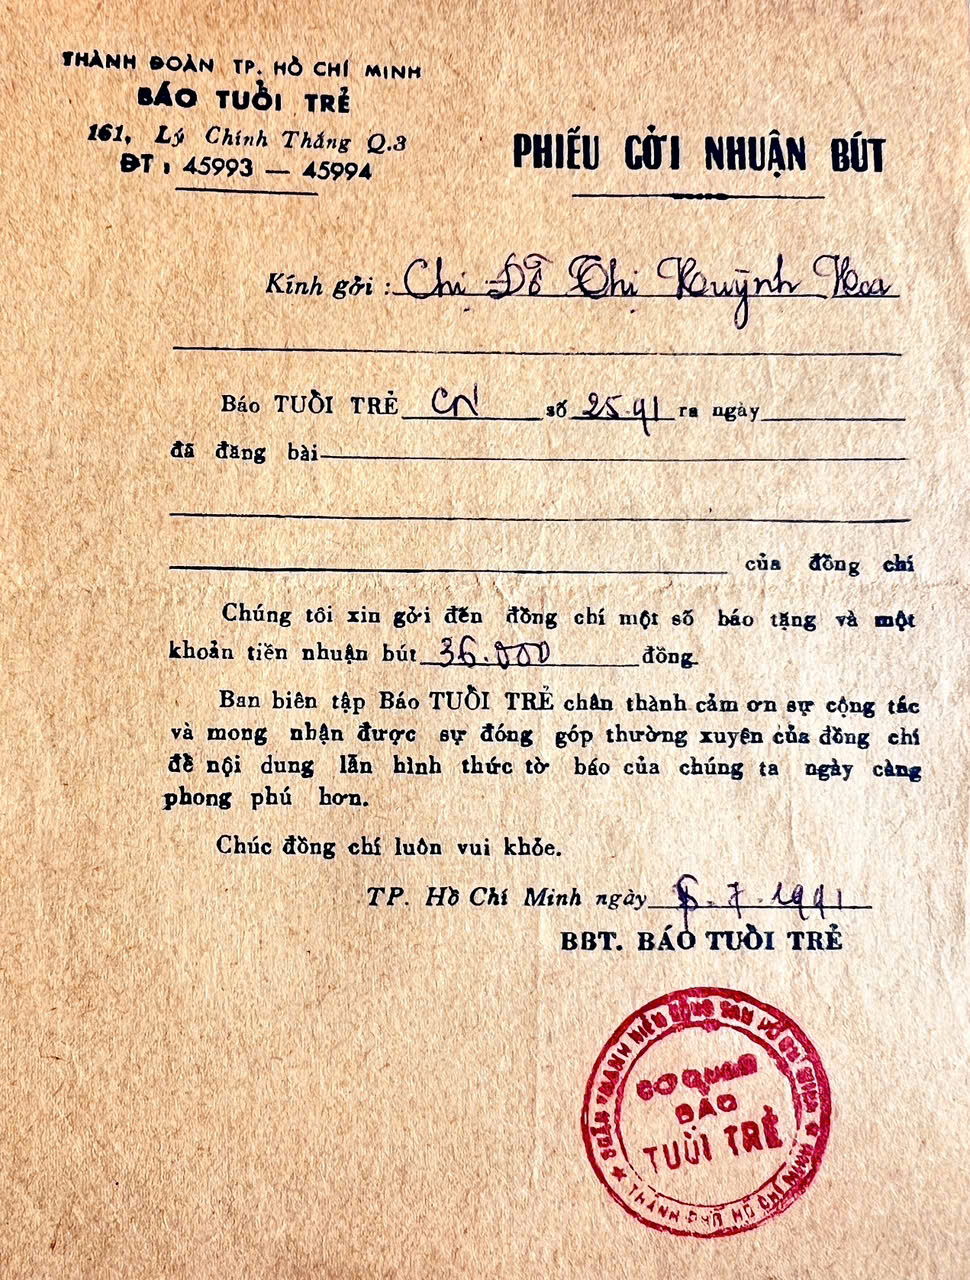 THÀNH ĐOÀN TP. HỒ CHÍ MINH
BÁO TUỔI TRẺ
161, Lý Chính Thắng Q.3
ĐT : 45993 — 45994
PHIẾU GỞI NHUẬN BÚT
Kính gởi : Chị Đỗ Thị Huỳnh Hoa
Báo TUỔI TRẺ CN số 25.91 ra ngày
đã đăng bài
của đồng chí
Chúng tôi xin gởi đến đồng chí một số báo tặng và một
khoản tiền nhuận bút 36.000 đồng
Ban biên tập Báo TUỔI TRẺ chân thành cảm ơn sự cộng tác
và mong nhận được sự đóng góp thường xuyên của đồng chí
để nội dung lẫn hình thức tờ báo của chúng ta ngày càng
phong phú hơn.
Chúc đồng chí luôn vui khỏe.
TP. Hồ Chí Minh ngày 5.7.1991
BBT. BÁO TUỔI TRẺ
ĐOÀN THANH NIÊN CỘNG SẢN HỒ CHÍ MINH
CƠ QUAN
BÁO
TUỔI TRẺ
THÀNH PHỐ HỒ CHÍ MINH